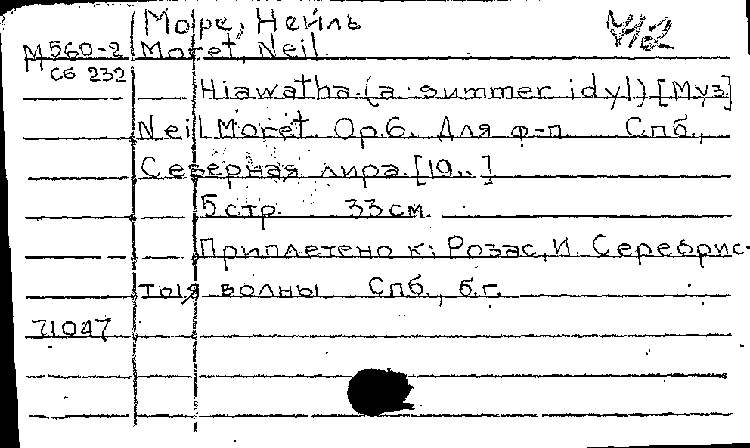 Море, Нейль
М 560-2 Moret, Neil.
Сб 232
Hiawatha. (a summer idyl) [Муз]
Neil Moret. Op.6. Для ф-п. Спб.,
Северная лира. [19..]
5 стр. 33 см.
Приплетено к: Розас, И. Серебрис-
тыя волны. Спб., б.г.
71047